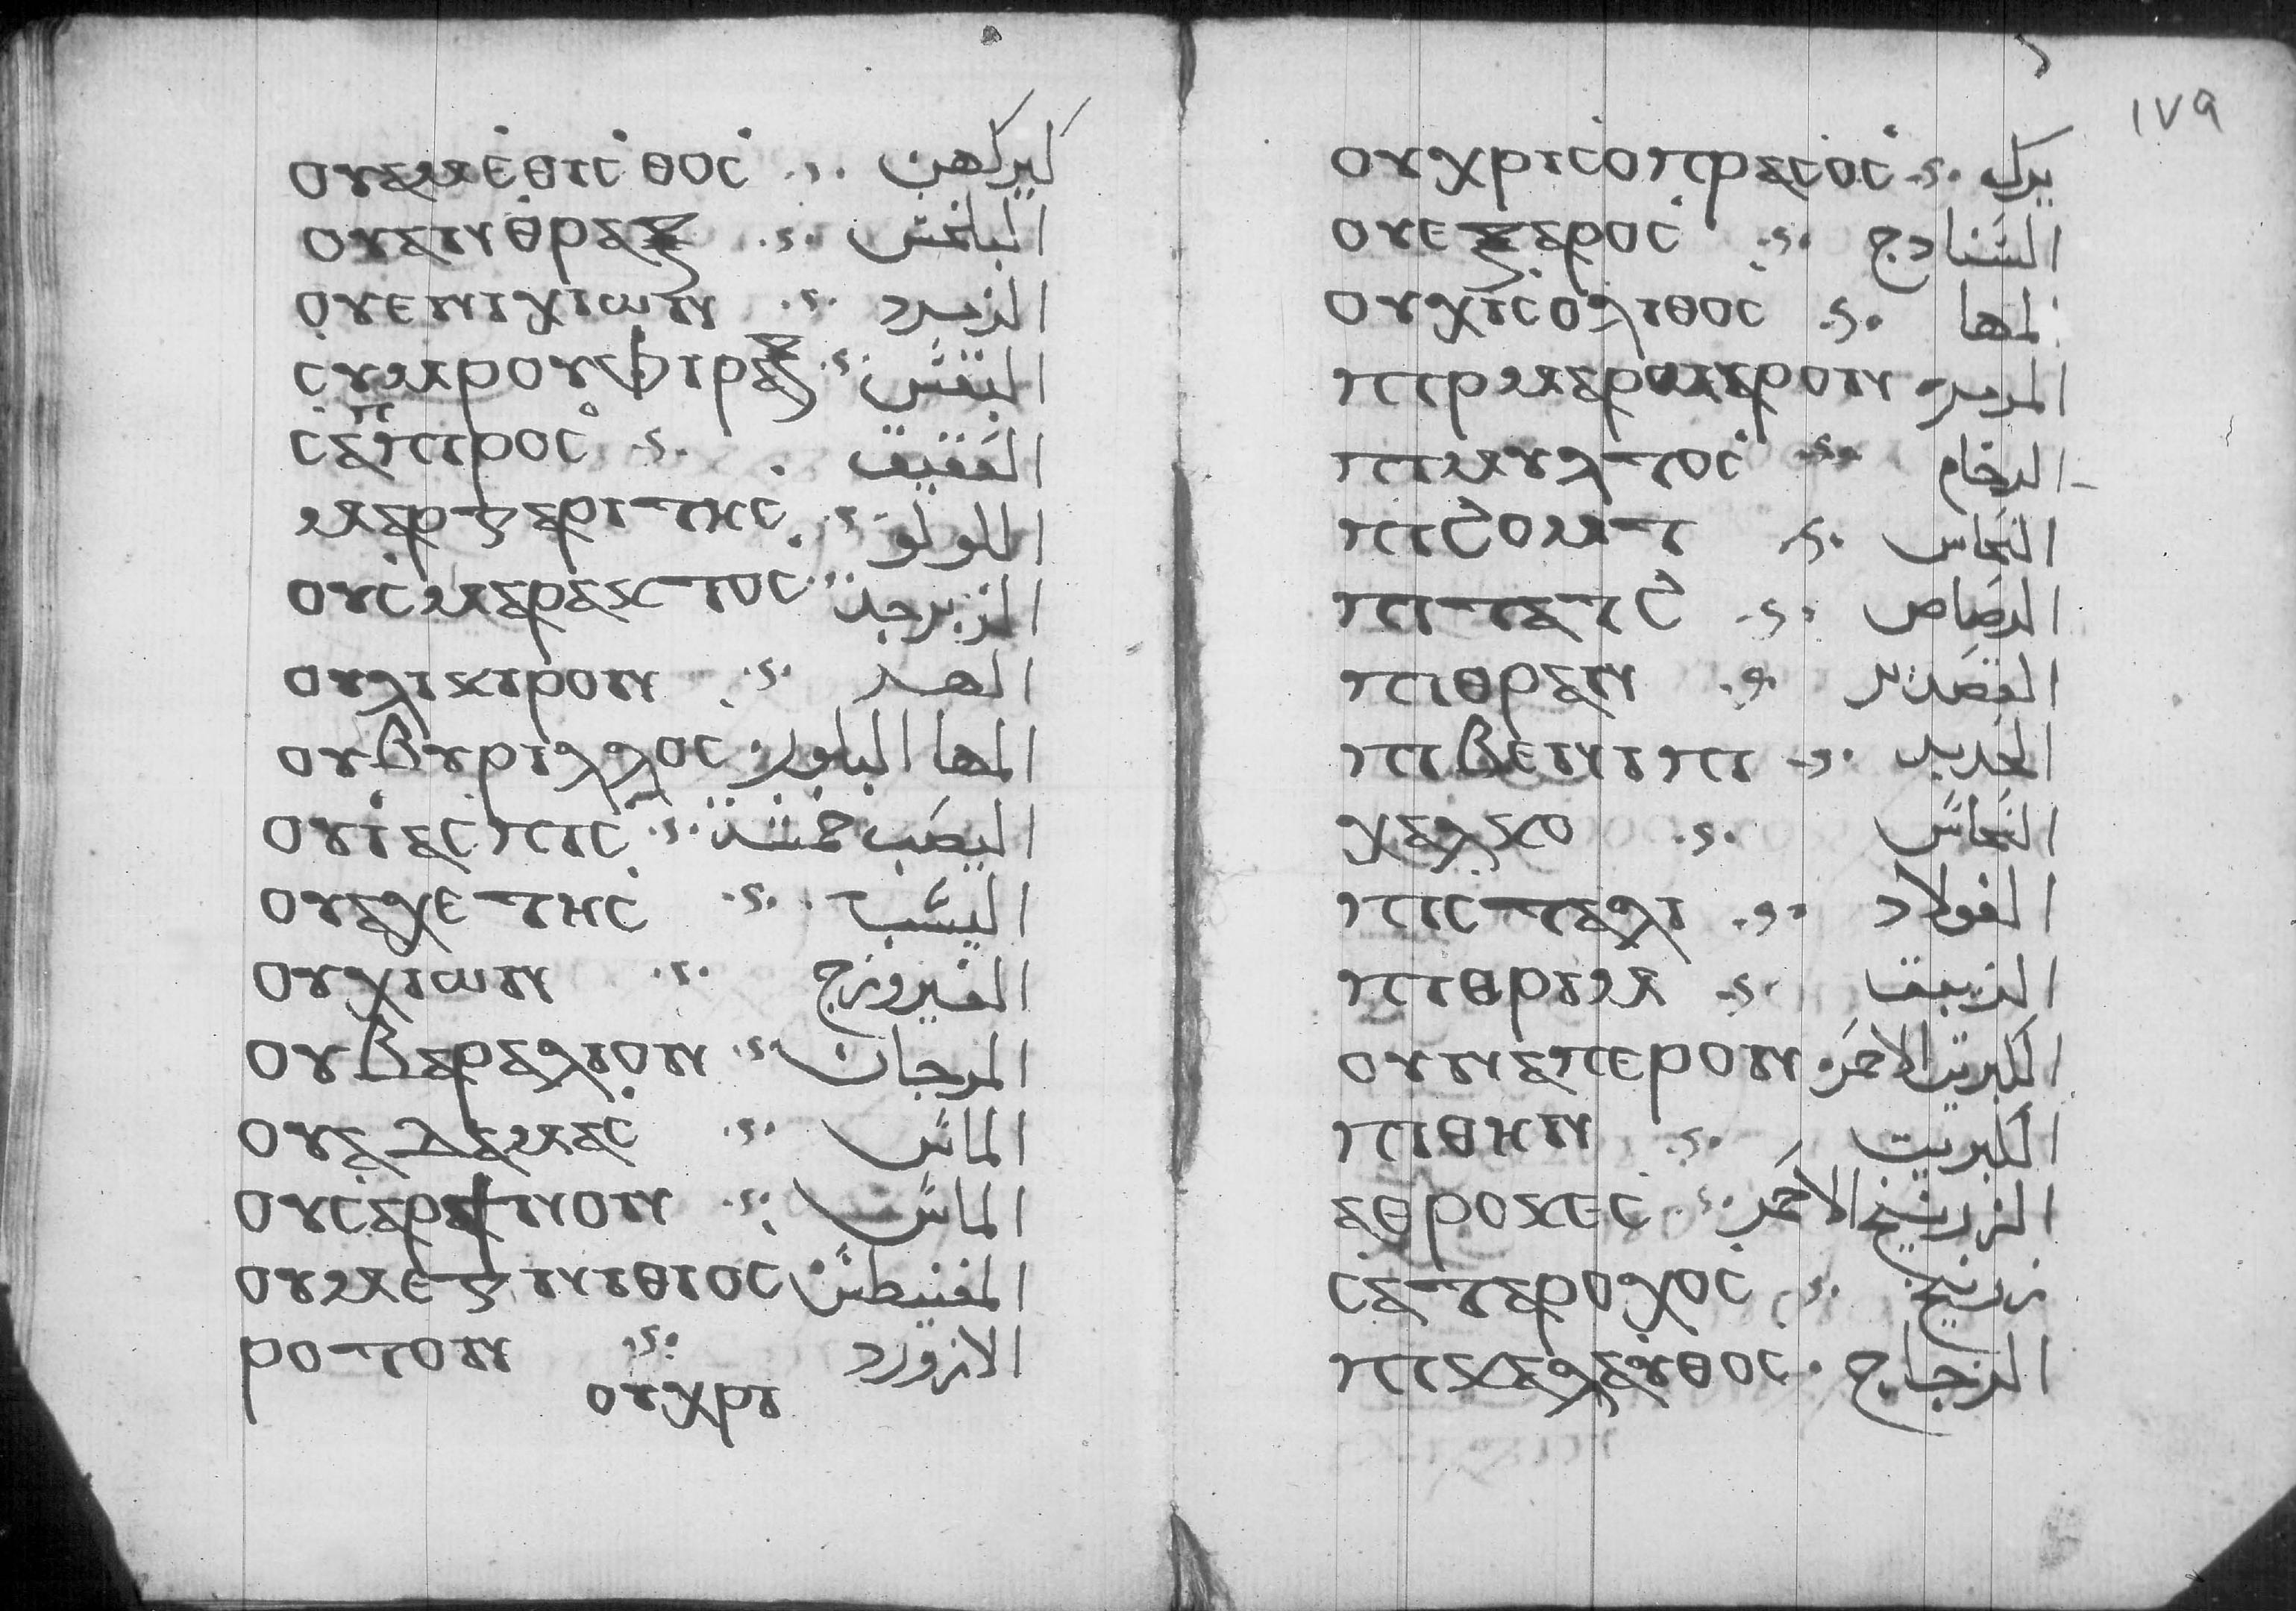 ⲟⲩⲁⲙⲉⲑⲓⲥⲑⲟⲥ كيركهن
ⲟⲩⲁⲛⲑⲣⲁⲝ البلخش
ⲟⲩⲉⲛⲓⲭⲓⲱⲛ الزمرد
ⲥⲩⲙⲣⲟⲩⲫⲓⲣⲁⲝ البنفش
ⲥⲁⲡⲡⲓⲣⲟⲥ العقيق
ⲙⲁⲣⲅⲁⲣⲓⲧⲏⲥ اللولو
ⲟⲩⲥⲙⲁⲣⲁⲕⲧⲟⲥ الزبرجد
ⲟⲩⲗⲓⲕⲓⲣⲟⲛ
ⲟⲩⲃⲩⲣⲓⲗⲗⲟⲥ المها البلور
ⲟⲩⲓⲁⲥⲡⲓⲥ اليصب خمشد
ⲟⲩⲁⲭⲉⲧⲏⲥ اليشب
ⲟⲩⲭⲓⲱⲛ الفيروزج
ⲟⲩⲃⲁⲣⲁⲗⲓⲟⲛ المرجان
ⲟⲩⲁⲇⲁⲙⲁⲥ الماس
ⲟⲩⲥⲁⲣⲁⲛⲟⲛ الماس
ⲟⲩⲙⲉⲅⲛⲓⲑⲓⲟⲥ المغنيطس
ⲣⲟⲧⲟⲛ الازورد
ⲟⲩⲭⲣⲓ
١٧٩
ⲟⲩⲭⲣⲓⲥⲟⲡⲣⲁⲥⲟⲥ يرك
ⲟⲩⲉⲝⲁⲣⲟⲥ الشنادج
ⲟⲩⲭⲓⲥⲟⲗⲓⲑⲟⲥ لمها
ⲡⲓⲣⲙⲁⲣⲟⲙⲁⲣⲟⲛ المرمر
ⲡⲓⲙⲩⲗⲧⲟⲥ الرخام
ⲡⲓϩⲟⲙⲧ النحاس
ⲡⲓⲧⲁⲧϩ الرصاص
ⲡⲓⲑⲣⲁⲛ القصدير
ⲡⲓⲃⲉⲛⲓⲡⲓ الحديد
ⲭⲁⲗⲕⲟ النحاس
ⲡⲓⲥⲧⲁⲗⲓ الفولاد
ⲡⲓⲑⲣⲓⲙ الزيبق
ⲟⲩⲛⲁⲡⲉⲣⲟⲛ الكبريت الاحمر
ⲡⲓⲑⲏⲛ الكبريت
ⲁⲑⲣⲟⲕⲉⲥ الزرنيخ الاحمر
ⲥⲁⲧⲁⲣⲟⲭⲟⲥ زرنيخ
ⲡⲓⲕⲁⲗⲁⲩⲑⲟⲥ الزجاج